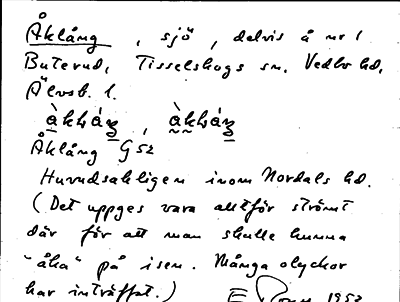 Åklång, sjö, delvis å nr 1
Buterud, Tisselskogs sn. Vedbo hd.
Älvsb. l.
Åklång G52
Huvudsakligen inom Nordals hd.
(Det uppges vara alltför strömt
där för att man skulle kunna
"åka" på isen. Många olyckor
har inträffat.) E 1952